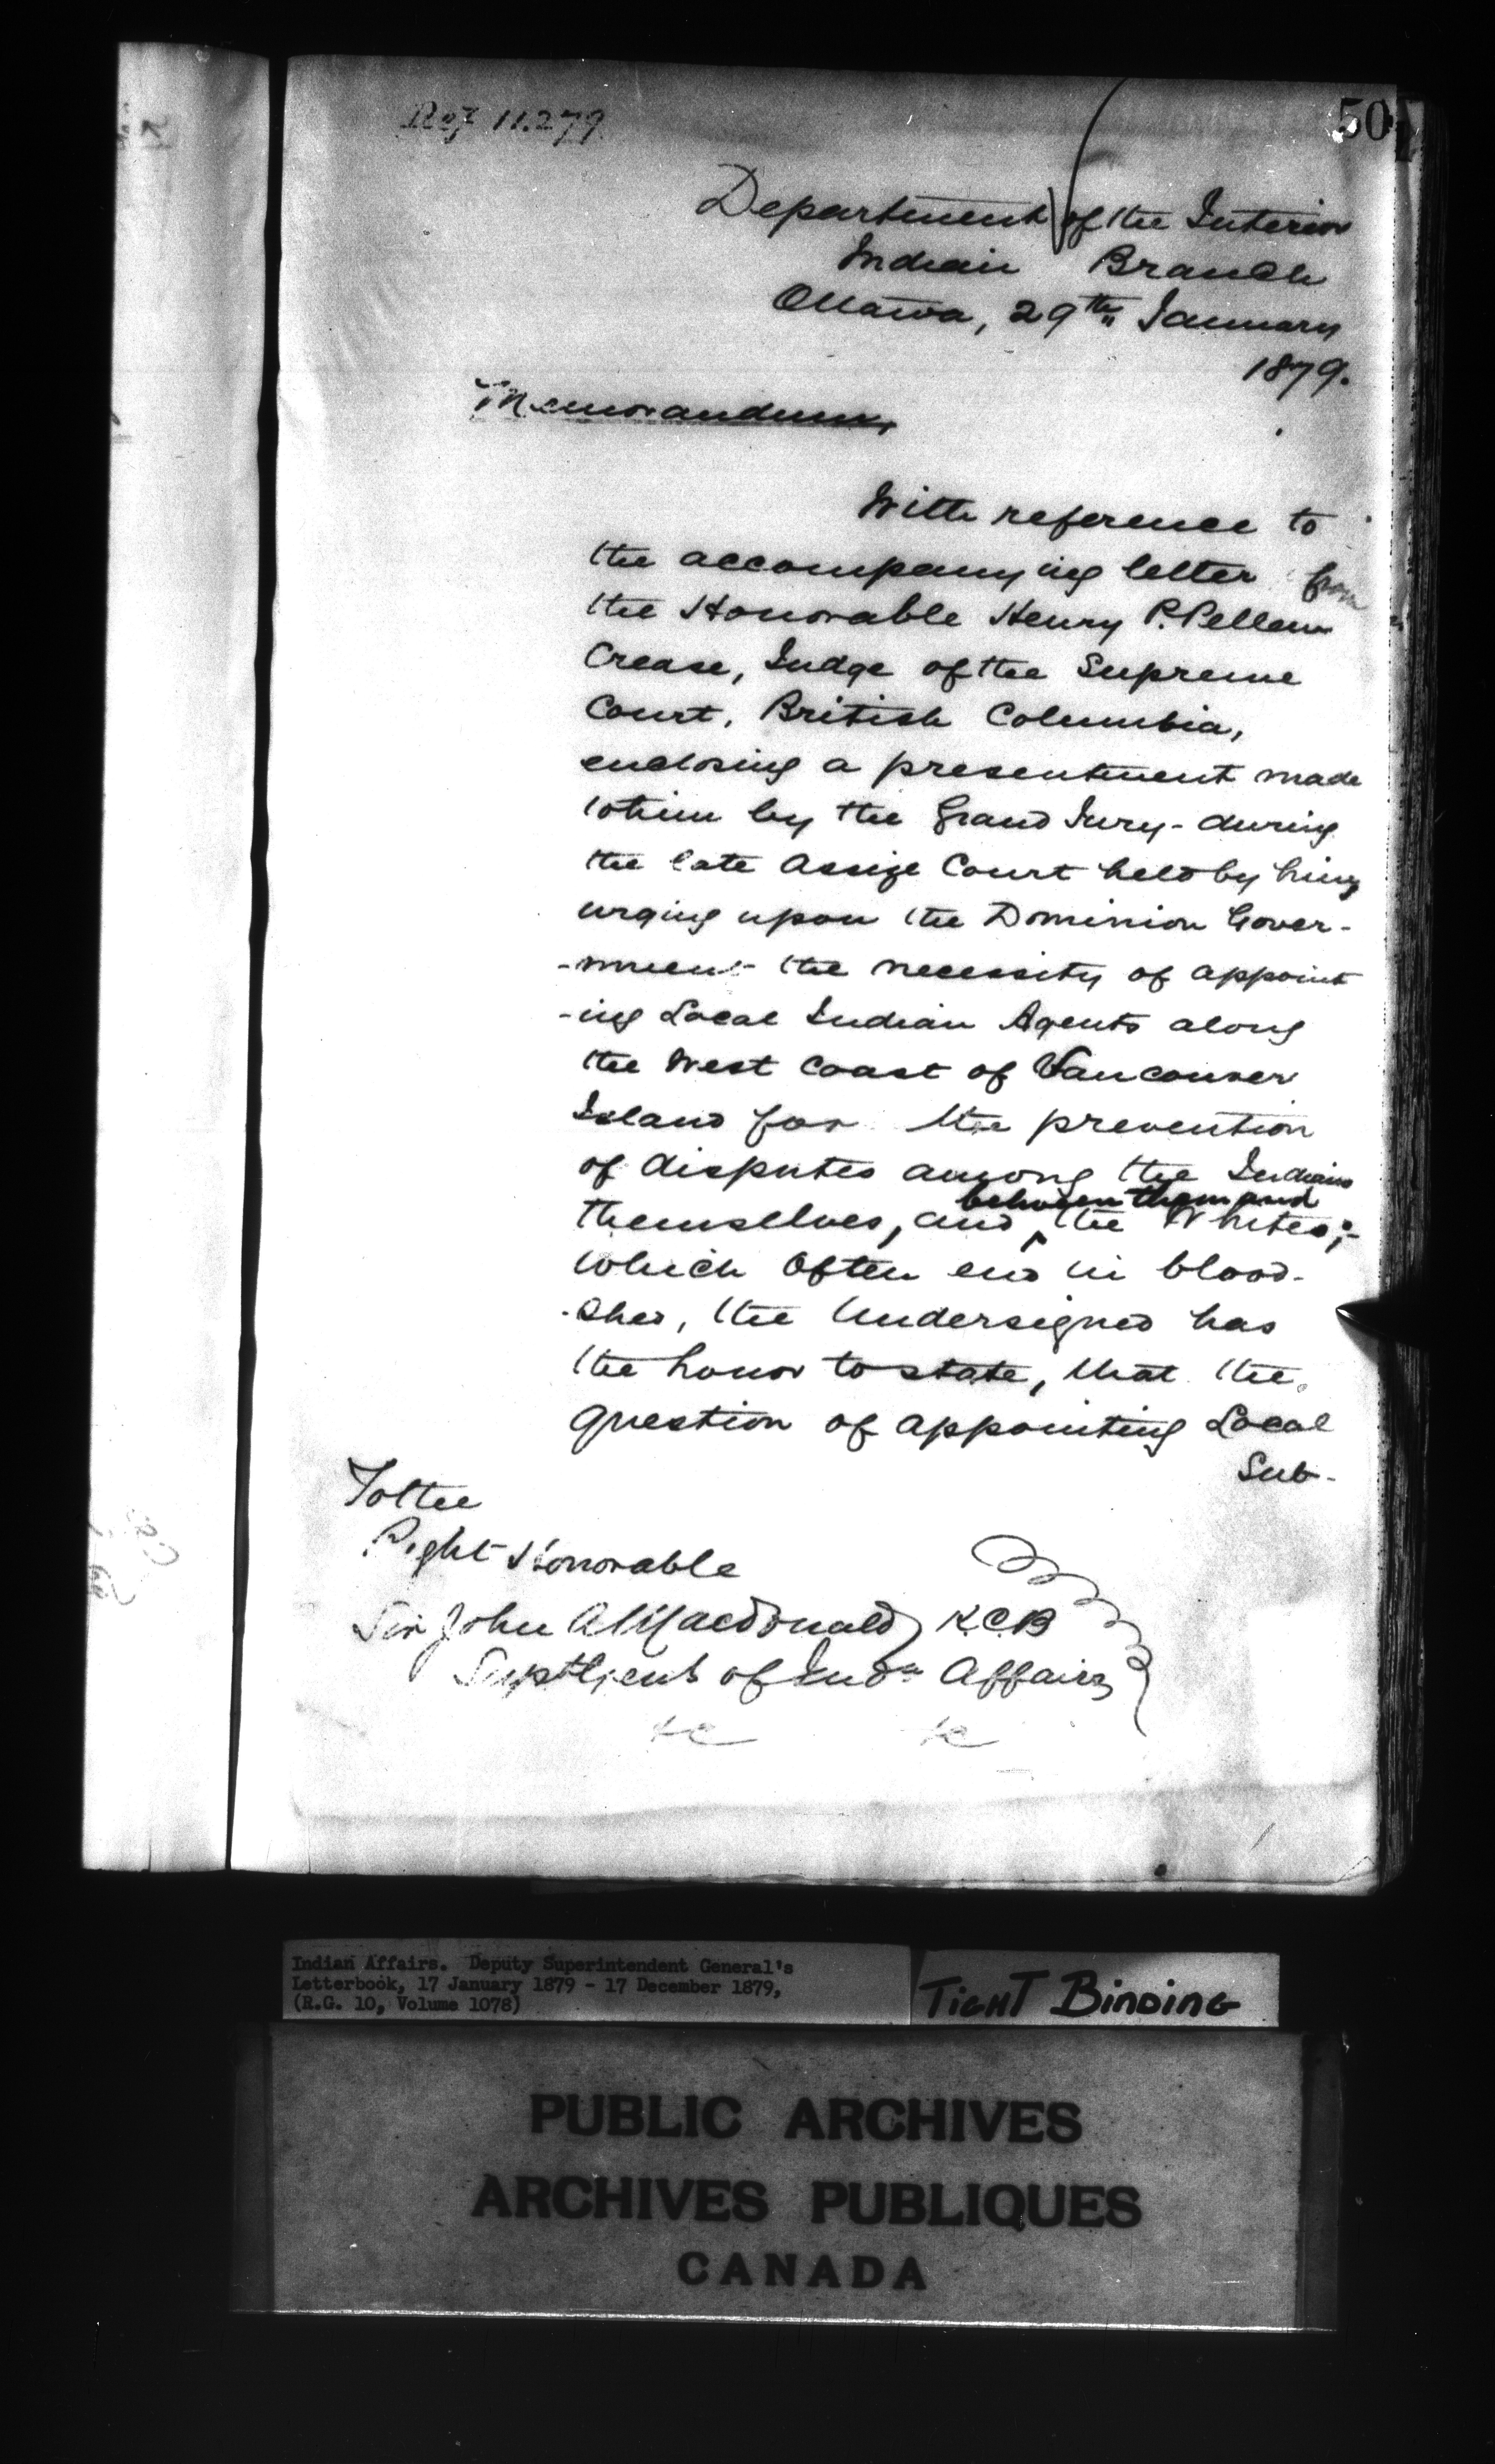 Ref 11.279
50
Department of the Interior
Indian Branch
Ottawa, 29th January
1879.
Memorandum,
With reference to
the accompanying letter from
the Honorable Henry P. Pellew
Crease, Judge of the Supreme
Court, British Columbia,
enclosing a presentment made
to him by the Grand Jury - during
the late Assize Court held by him,
urging upon the Dominion Gover-
-nment the necessity of appoint
-ing Local Indian Agents along
the West Coast of Vancouver
Island for the prevention
of disputes among the Indians
between them and
themselves, and ^ the Whites;-
which often end in blood-
-shed, the Undersigned has
the honor to state, that the
question of appointing Local
Sub-
To the
Right Honorable
Sir John A Macdonald, K.C.B
Supt Genl of Indn Affairs
&c &c
Indian Affairs. Deputy Superintendent General's
Letterbook, 17 January 1879 - 17 December 1879,
(R.G. 10, Volume 1078)
TIGHT BINDING
PUBLIC ARCHIVES
ARCHIVES PUBLIQUES
CANADA